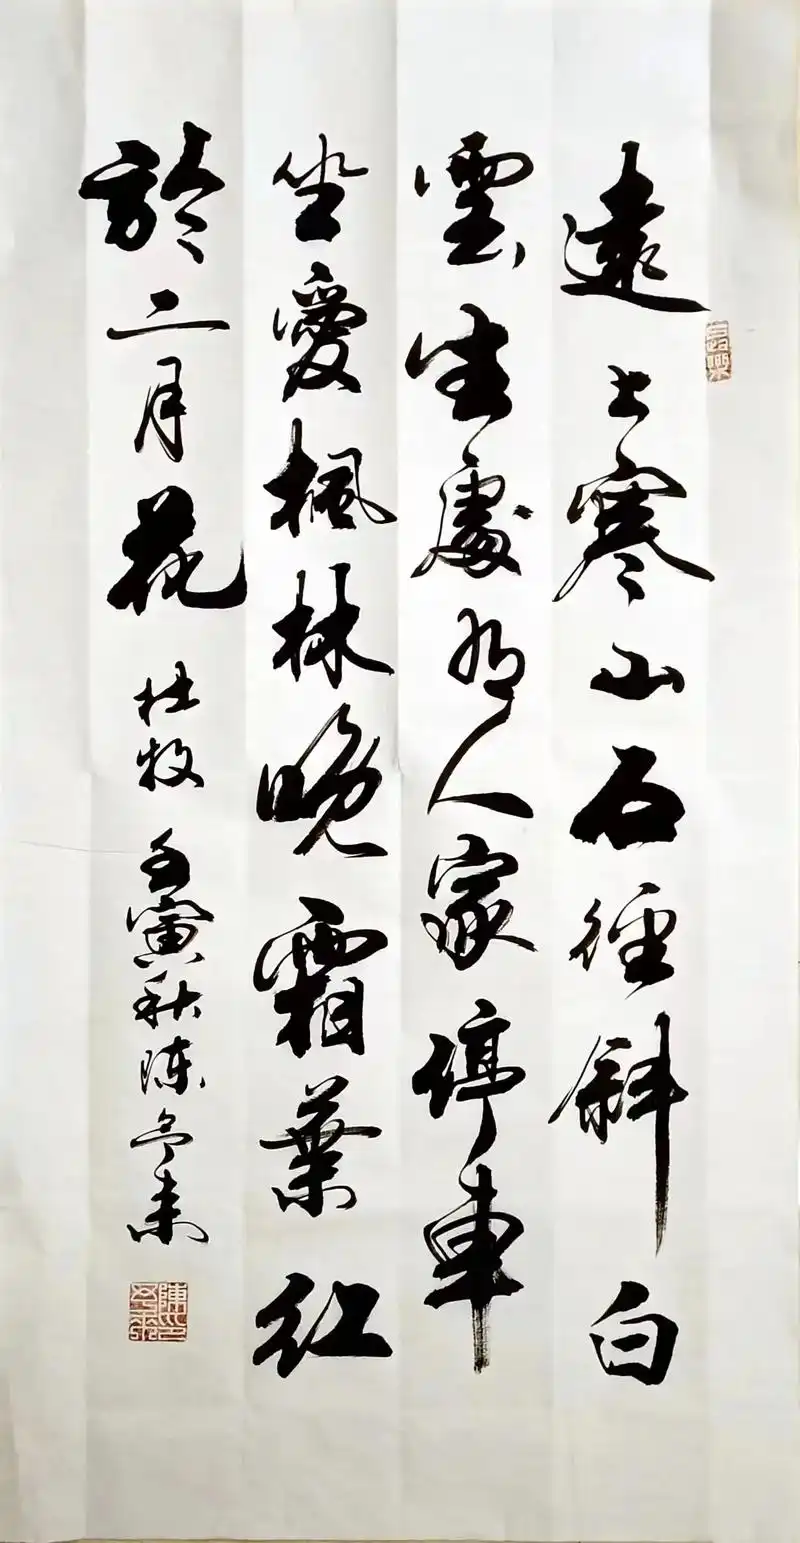 遠上寒山石徑斜白
雲生處有人家停車
坐愛楓林晚霜葉紅
於二月花 杜牧 壬寅秋陳